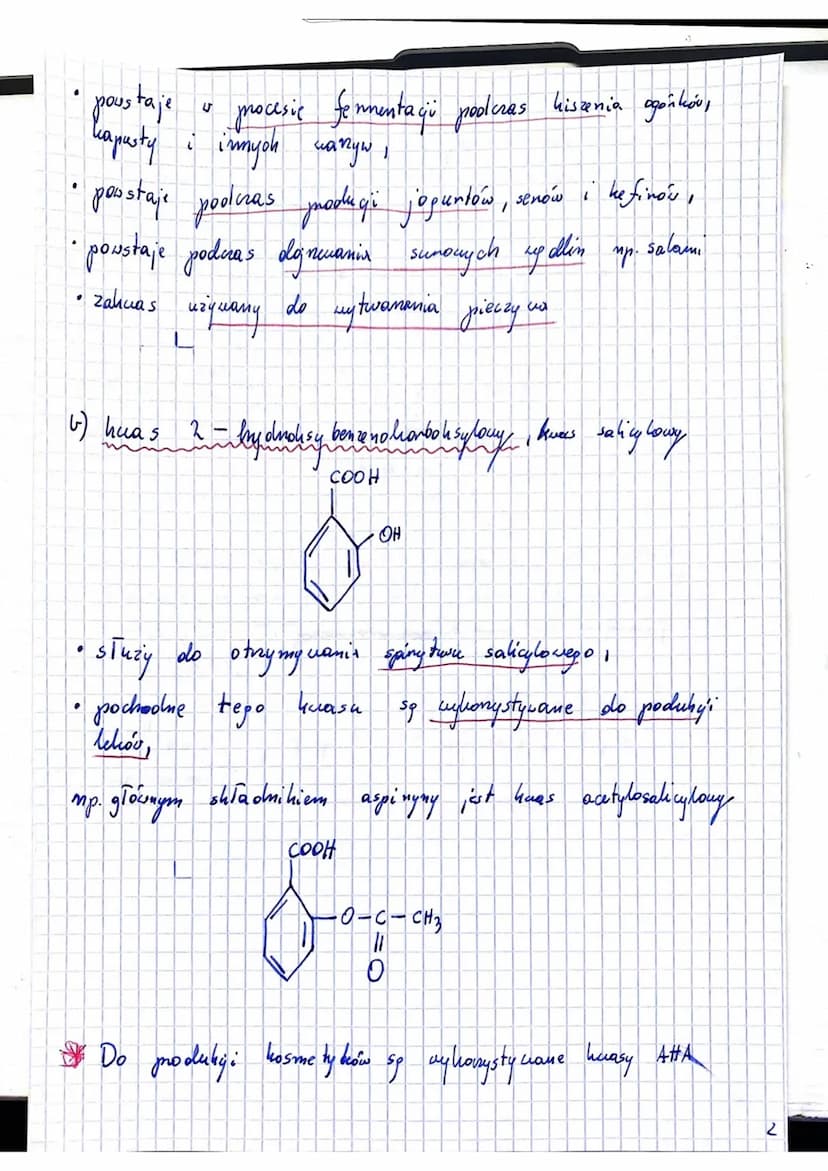 • powstaje w procesie fermentacji podczas kiszenia ogórków,
kapusty i innych warzyw,
• powstaje podczas produkcji jogurtów, serów i kefirów,
• powstaje podczas dojrzewania surowych wędlin np. salami
• zakwas używany do wytwarzania pieczywa
b) kwas 2-hydroksybenzenokarboksylowy, kwas salicylowy
COOH
OH
• służy do otrzymywania spirytusu salicylowego,
• pochodne tego kwasu są wykorzystywane do podukcji
leków,
np. głównym składnikiem aspiryny jest kwas acetylosalicylowy
COOH
O-C-CH3
||
O
Do produkcji kosmetyków są wykorzystywane kwasy AHA
2